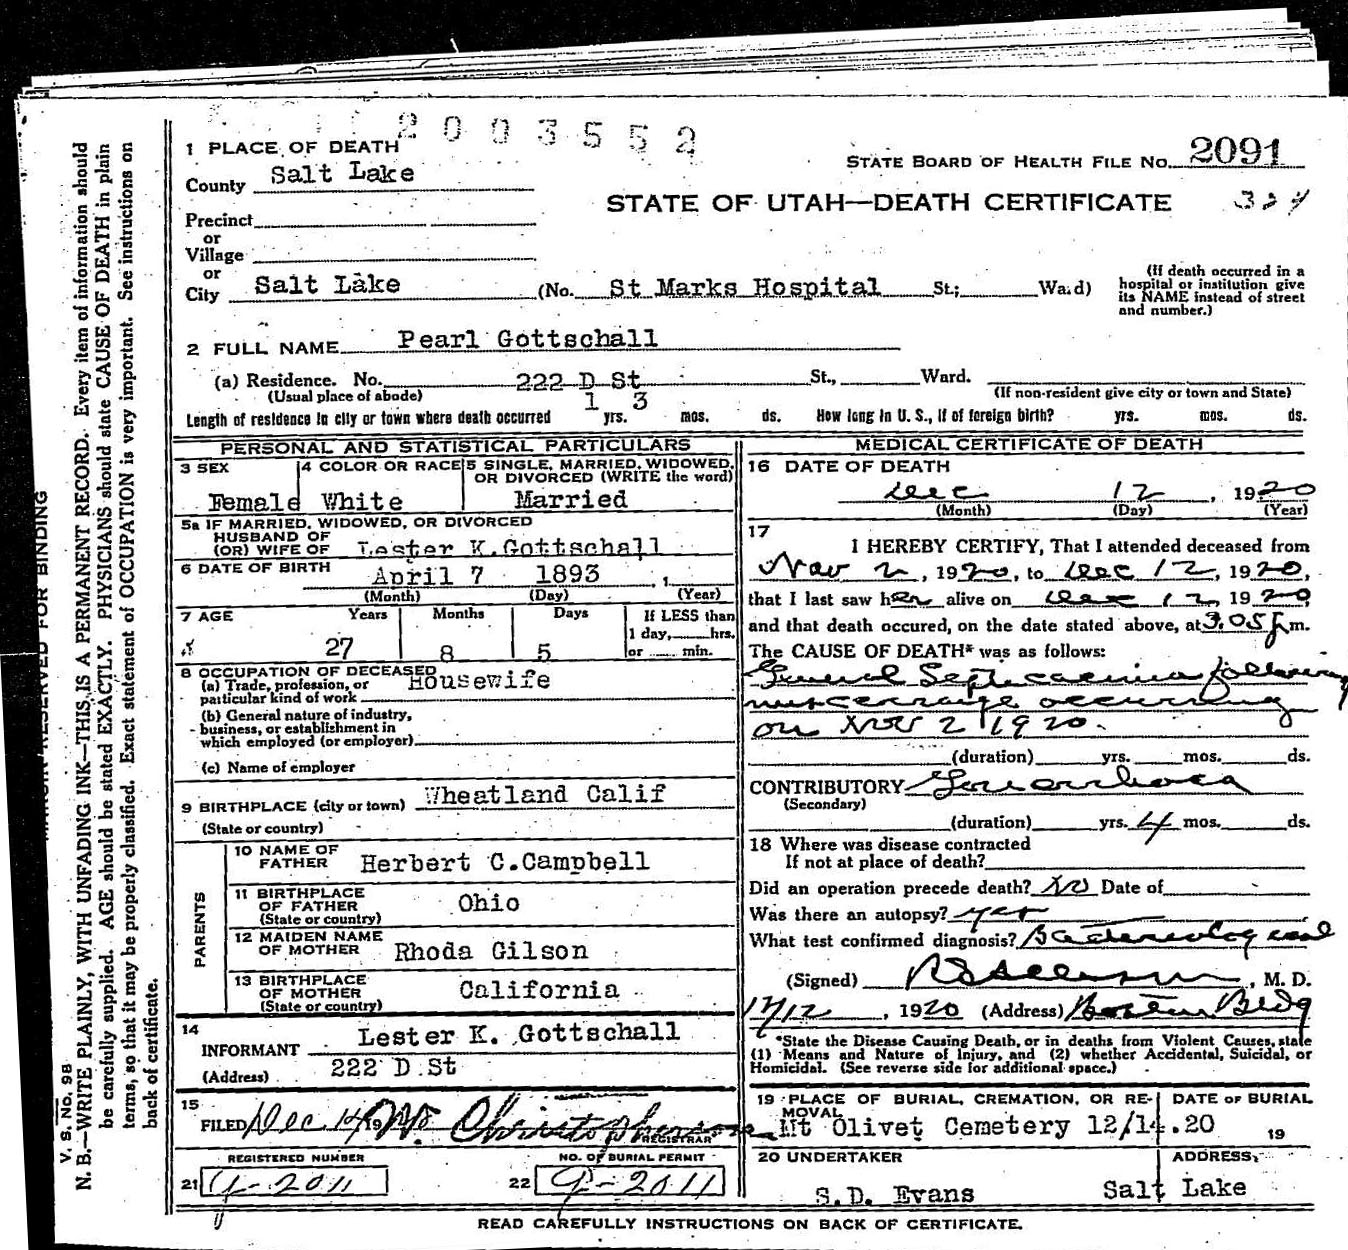 2003552
1 PLACE OF DEATH
STATE BOARD OF HEALTH FILE No. 2091
County Salt Lake
STATE OF UTAH—DEATH CERTIFICATE 324
Precinct
or
Village
or
City Salt Lake (No. St Marks Hospital St; Ward)
(If death occurred in a
hospital or institution give
its NAME instead of street
and number.)
2 FULL NAME Pearl Gottschall
(a) Residence. No. 222 D St St., Ward.
(Usual place of abode) (If non-resident give city or town and State)
Length of residence in city or town where death occurred 1 yrs. 3 mos. ds. How long in U. S., if of foreign birth? yrs. mos. ds.
PERSONAL AND STATISTICAL PARTICULARS
3 SEX 4 COLOR OR RACE 5 SINGLE, MARRIED, WIDOWED,
OR DIVORCED (WRITE the word)
Female White Married
5a IF MARRIED, WIDOWED, OR DIVORCED
HUSBAND OF
(OR) WIFE OF Lester K.Gottschall
6 DATE OF BIRTH April 7 1893
(Month) (Day) (Year)
7 AGE Years Months Days If LESS than
1 day, hrs.
27 8 5 or min.
8 OCCUPATION OF DECEASED
(a) Trade, profession, or
particular kind of work Housewife
(b) General nature of industry,
business, or establishment in
which employed (or employer)
(c) Name of employer
9 BIRTHPLACE (city or town) Wheatland Calif
(State or country)
PARENTS
10 NAME OF
FATHER Herbert C.Campbell
11 BIRTHPLACE
OF FATHER Ohio
(State or country)
12 MAIDEN NAME
OF MOTHER Rhoda Gilson
13 BIRTHPLACE
OF MOTHER California
(State or country)
14
INFORMANT Lester K. Gottschall
(Address) 222 D St
15
FILED Dec 14 19 Christopherson
REGISTRAR
REGISTERED NUMBER NO. OF BURIAL PERMIT
21 G-2011 22 G-2011
MEDICAL CERTIFICATE OF DEATH
16 DATE OF DEATH
Dec 12, 1920
(Month) (Day) (Year)
17
I HEREBY CERTIFY, That I attended deceased from
Nov 2, 1920, to Dec 12, 1920,
that I last saw her alive on Dec 12, 1920
and that death occured, on the date stated above, at 3.05 P m.
The CAUSE OF DEATH* was as follows:
General Septicaemia following
miscarriage occurring
on Nov 2 1920.
(duration) yrs. mos. ds.
CONTRIBUTORY Gonorrhoea
(Secondary)
(duration) yrs. 4 mos. ds.
18 Where was disease contracted
If not at place of death?
Did an operation precede death? No Date of
Was there an autopsy? yes
What test confirmed diagnosis? Bacteriological
(Signed) , M. D.
12/12, 1920 (Address) Boston Bldg
*State the Disease Causing Death, or in deaths from Violent Causes, state
(1) Means and Nature of Injury, and (2) whether Accidental, Suicidal, or
Homicidal. (See reverse side for additional space.)
19 PLACE OF BURIAL, CREMATION, OR RE-
MOVAL DATE OF BURIAL
Mt Olivet Cemetery 12/14.20 19
20 UNDERTAKER ADDRESS,
S.D. Evans Salt Lake
READ CAREFULLY INSTRUCTIONS ON BACK OF CERTIFICATE.
MARGIN RESERVED FOR BINDING
V. S. No. 98
N. B.—WRITE PLAINLY, WITH UNFADING INK—THIS IS A PERMANENT RECORD. Every item of information should
be carefully supplied. AGE should be stated EXACTLY. PHYSICIANS should state CAUSE OF DEATH in plain
terms, so that it may be properly classified. Exact statement of OCCUPATION is very important. See instructions on
back of certificate.